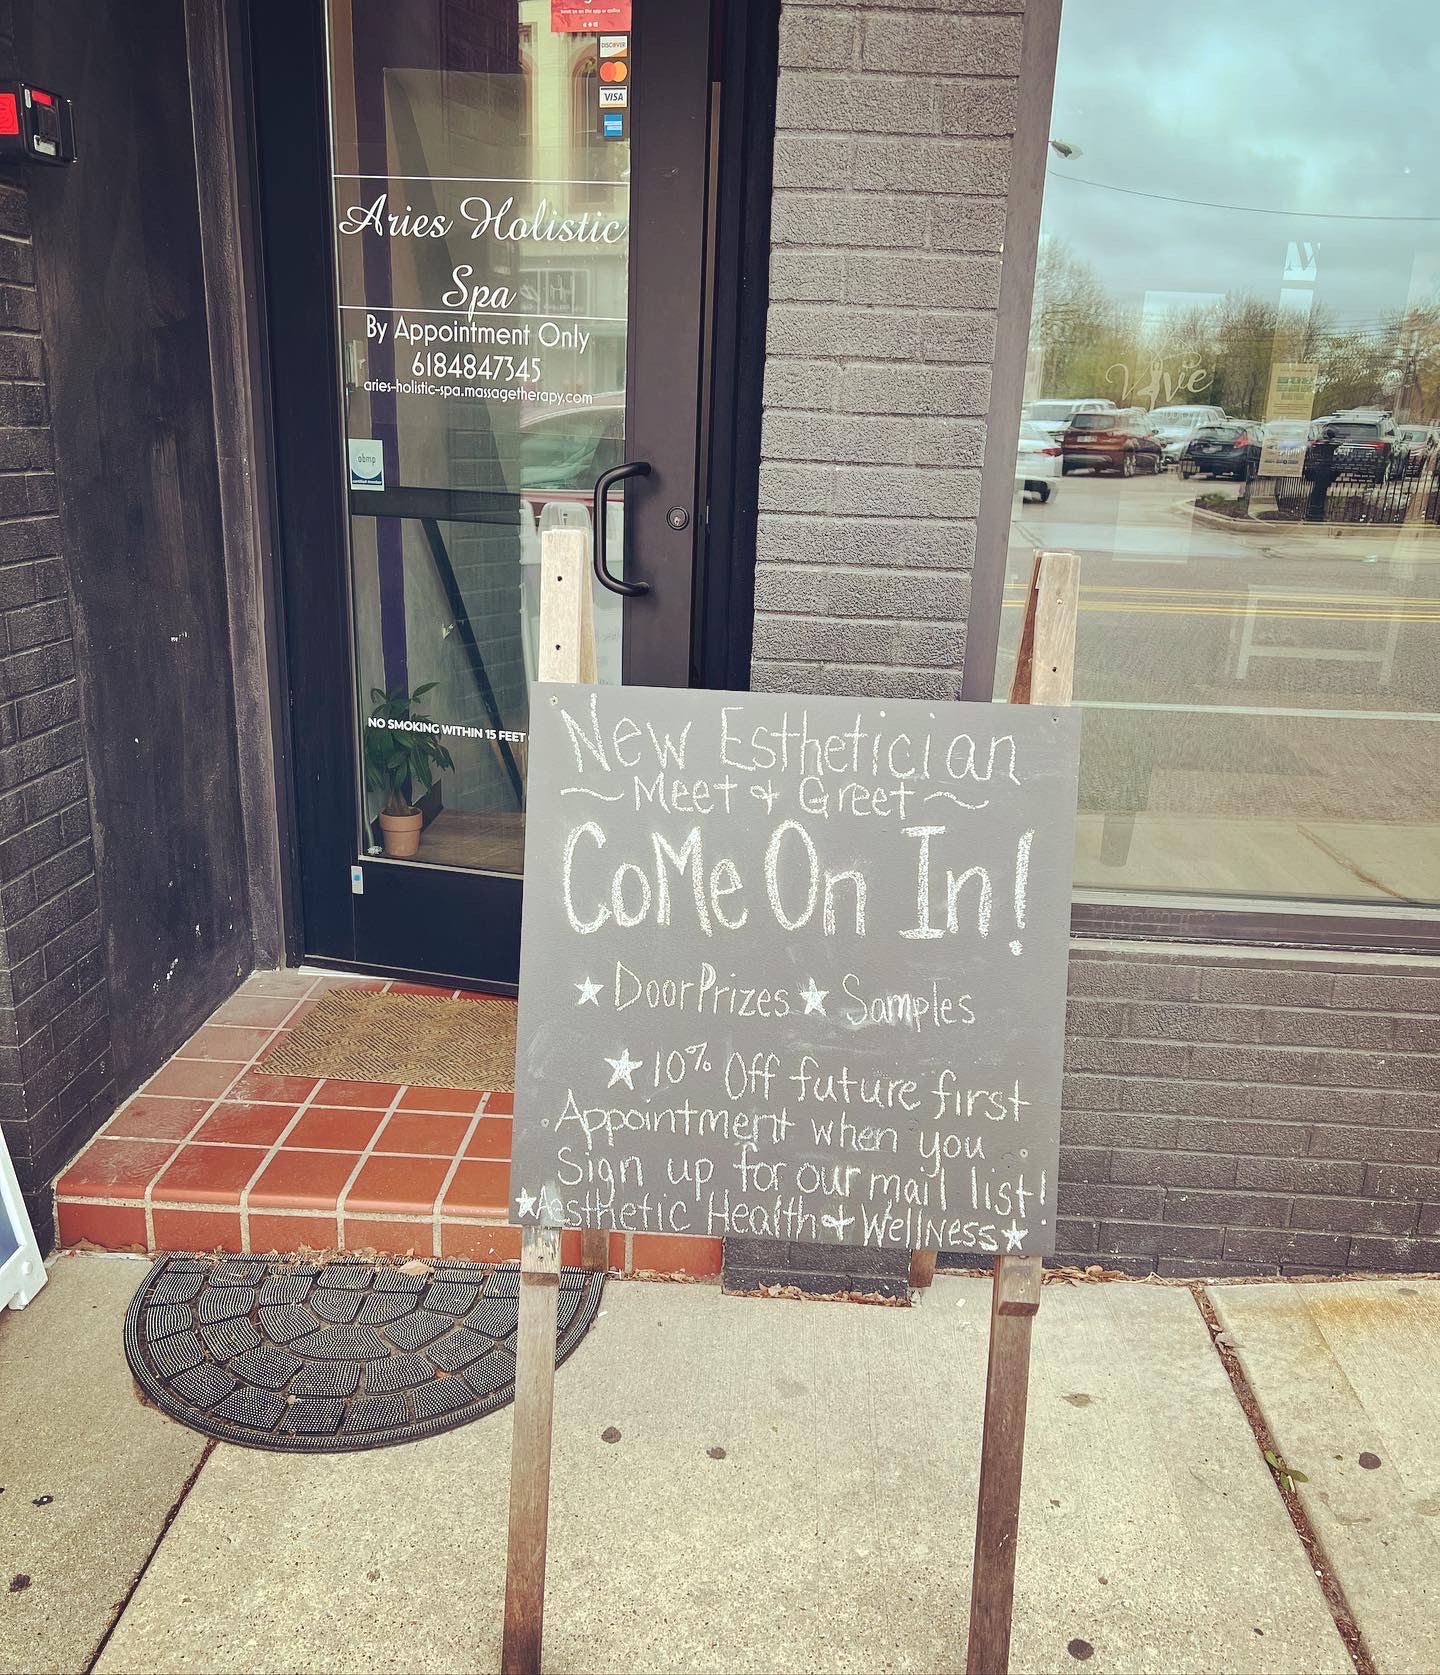 DISCOVER
VISA
Aries Holistic
Spa
By Appointment Only
6184847345
aries-holistic-spa.massagetherapy.com
abmp
certified member
NO SMOKING WITHIN 15 FEET
New Esthetician
~ Meet & Greet ~
CoMe On In!
★ DoorPrizes ★ Samples
★ 10% Off future first
Appointment when you
Sign up for our mail list!
★Aesthetic Health + Wellness★